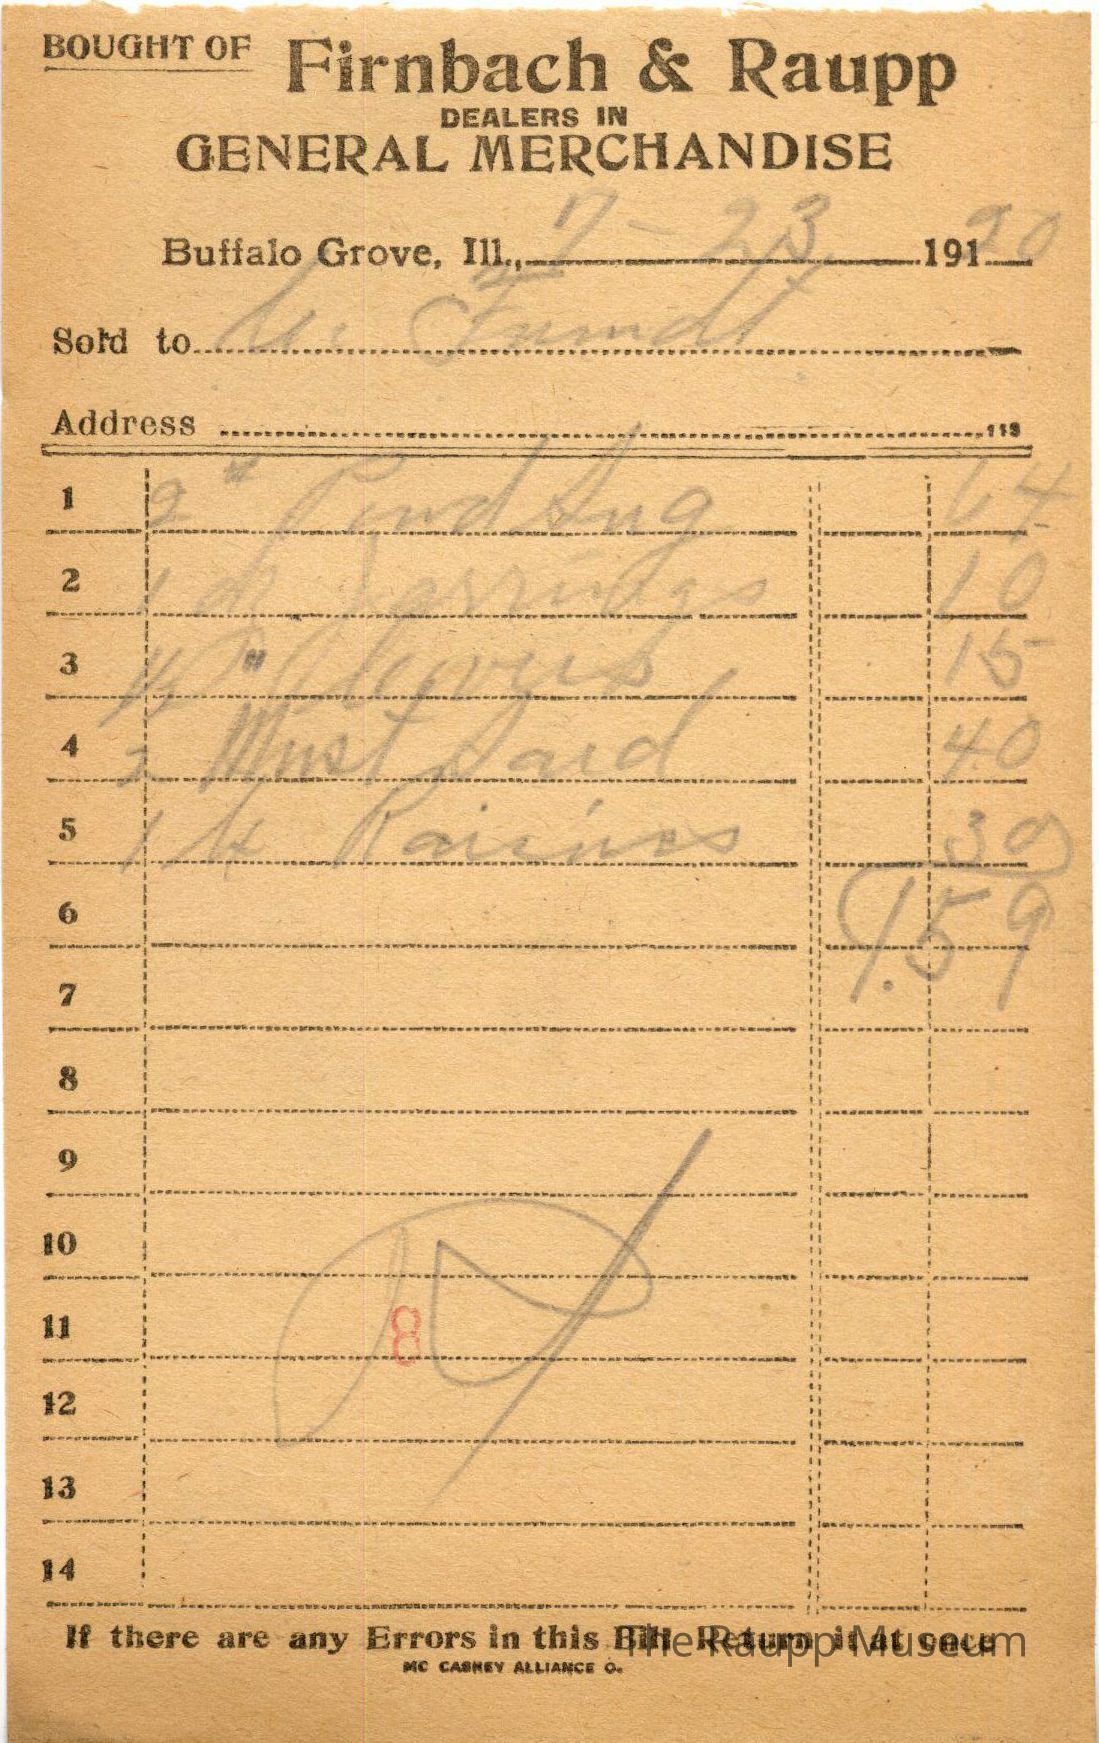 BOUGHT OF Firnbach & Raupp
DEALERS IN
GENERAL MERCHANDISE
Buffalo Grove, Ill., 7-23 191 20
Sold to
Address 113
1 2 # 64
2 1 10
3 15
4 2 Must Sard 40
5 1 # Raisines 30
6 1.59
7
8
9
10
11 8
12
13
14
If there are any Errors in this Bill Return it at once
The Raupp Museum
MC CASKEY ALLIANCE O.